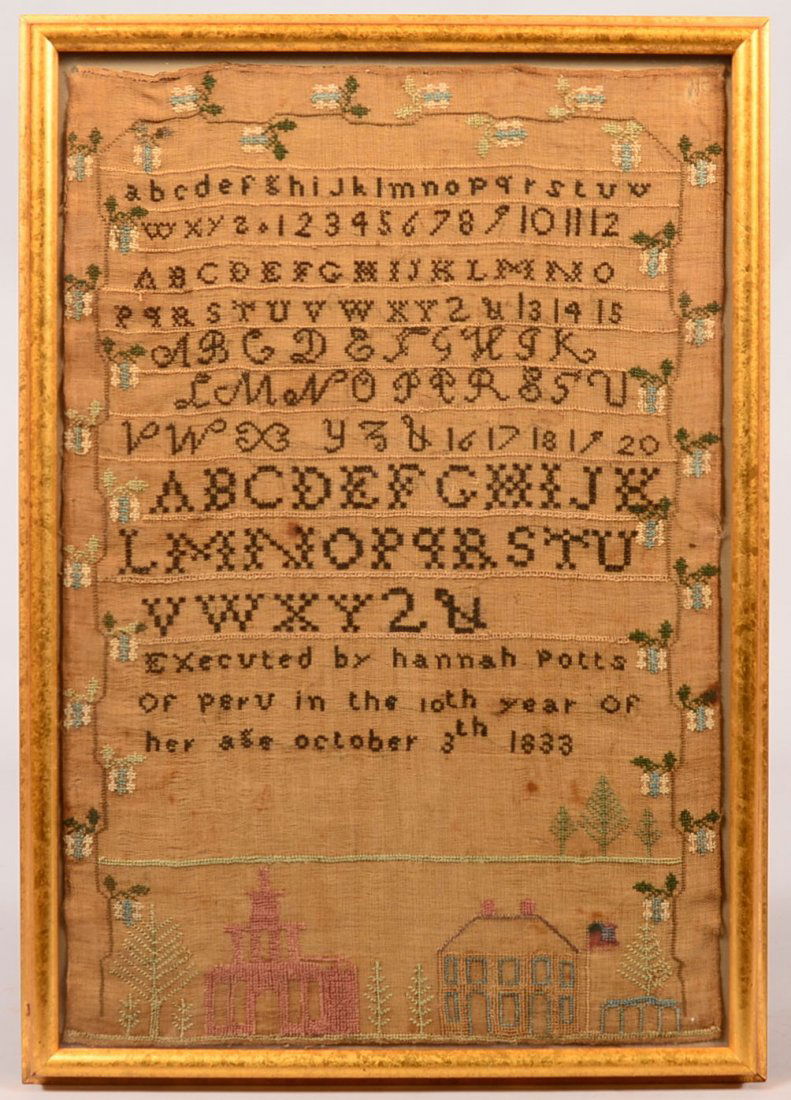 abcdefghiJklmnopqrstuv
wxyz 1 2 3 4 5 6 7 8 9 10 11 12
ABCDEFGHIJKLMNO
PqRSTUVWXYZ & 13 14 15
ABCDEFGHIK
LMNOPQRSTU
VWX YZ & 16 17 18 19 20
ABCDEFGHIJK
LMNOPqRSTU
VWXYZ &
Executed by hannah Potts
Of Peru in the 10th year Of
her age october 3th 1833